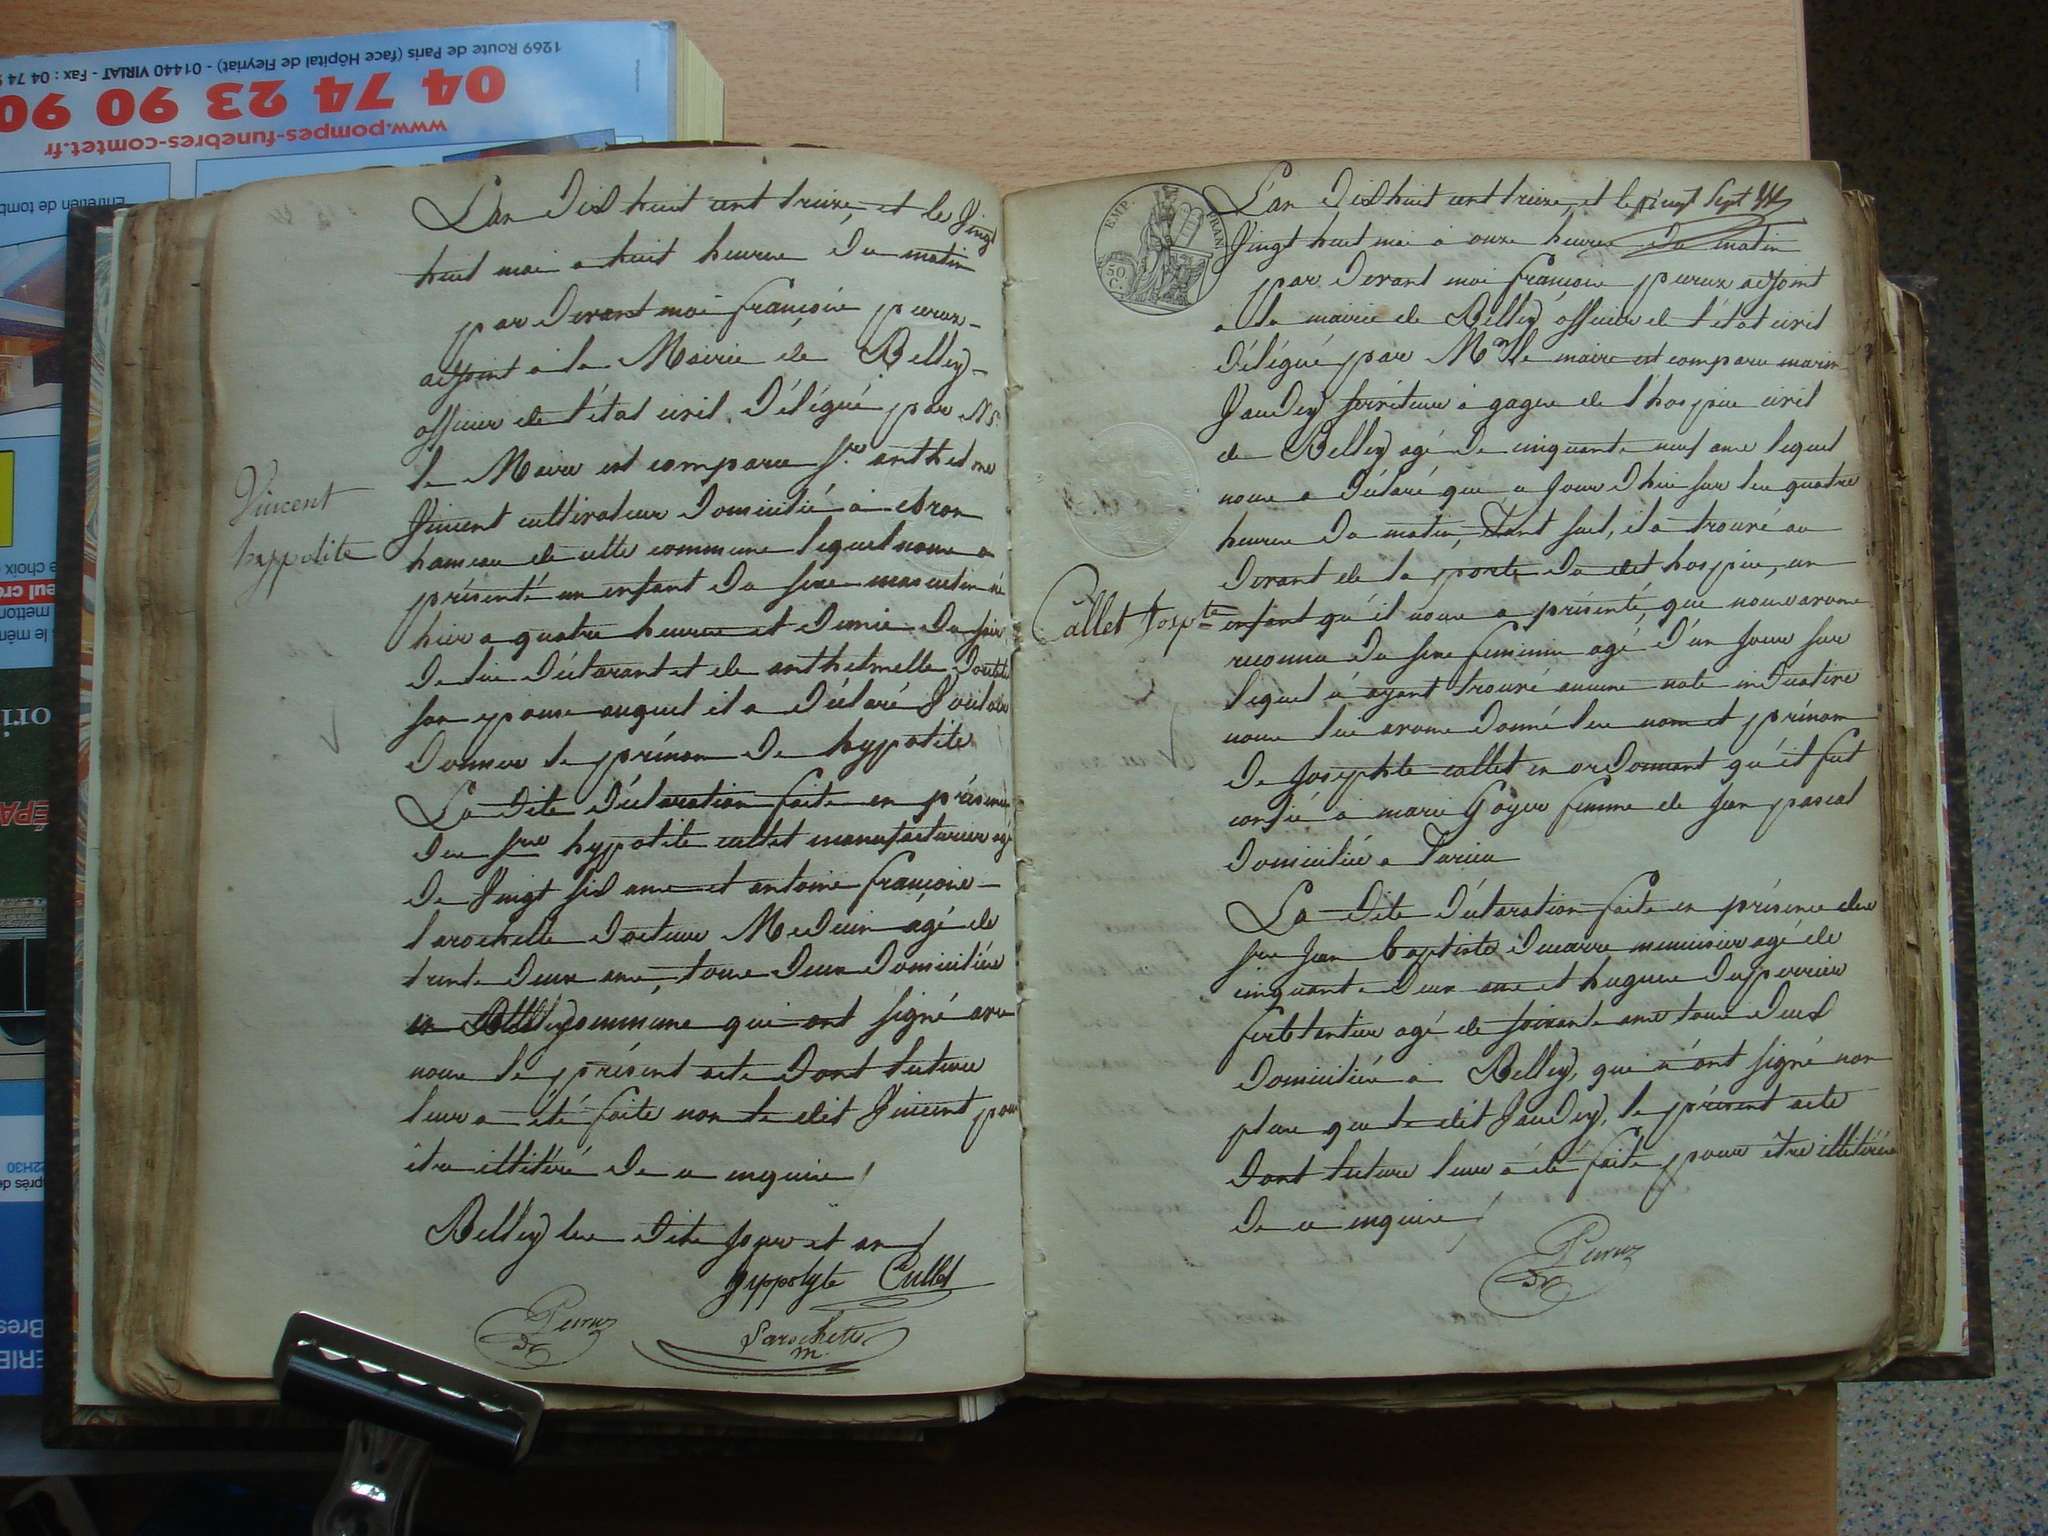 1269 Route de Paris (face Hôpital de Fleyriat) - 01440 VIRIAT - Fax : 04 74
04 74 23 90 90
www.pompes-funebres-comtet.fr
Entretien de tomb
L'an Dix huit cent treize, et le Vingt
huit mai a huit heures Du matin
par Devant moi françois peruz
adjoint a la Mairie de Belley
officier de l'état civil Délégué par Mr
le Maire est comparu Sr anthelme
Vincent cultivateur Domicilié a
hameau de cette commune lequel nous a
présenté un enfant Du sexe masculin né
hier a quatre heures et Demie Du soir
De lui Déclarant et de anthelmette
son epouse auquel il a Déclaré Vouloir
Donner le prénom De hypolite
Vincent
hyppolite
La Dite Déclaration faite en présence
Des Srs hypolite cullet manufacturier agé
De Vingt six ans et antoine françois
larochette Docteur Medecin agé de
trente Deux ans, tous Deux Domiciliés
Belley commune qui ont signé avec
nous le présent acte Dont lecture
leur a été faite non le dit Vincent pour
être illitéré De ce enquis
Belley les Dits jour et an
hyppolyte Cullet
Peruz
Larochette
m.
EMP. FRAN
50 C.
L'an Dix huit cent treize, et le vingt sept
Vingt huit mai a onze heures Du matin
par Devant moi francois peruz adjoint
a la mairie de Belley officier de l'état civil
Délégué par Mr le maire est comparu marin
Vaudey serviteur a gages de l'hospice civil
de Belley agé De cinquante neuf ans lequel
nous a Déclaré que ce jour D'hui sur les quatre
heures Du matin, étant seul, il a trouvé au
Devant de la porte Du dit hospice, un
Callet Josphte
enfant qu'il nous a présenté, que nous avons
reconnu Du sexe feminin agé D'un jour sur
lequel n'ayant trouvé aucune note indicative
nous lui avons Donné les nom et prénom
De Josephte callet en ordonnant qu'il fut
confié a marie Goyer femme de Jean pascal
Domiciliée a
La Dite Déclaration faite en présence des
Srs Jean baptiste Ducarre menuisier agé de
cinquante Deux ans et hugues Duperrier
ferblantier agé de soixante ans tous Deux
Domiciliés a Belley, qui n'ont signé non
plus que le dit Vaudey, le présent acte
Dont lecture leur a été faite pour être illitérés
De ce enquis
Peruz